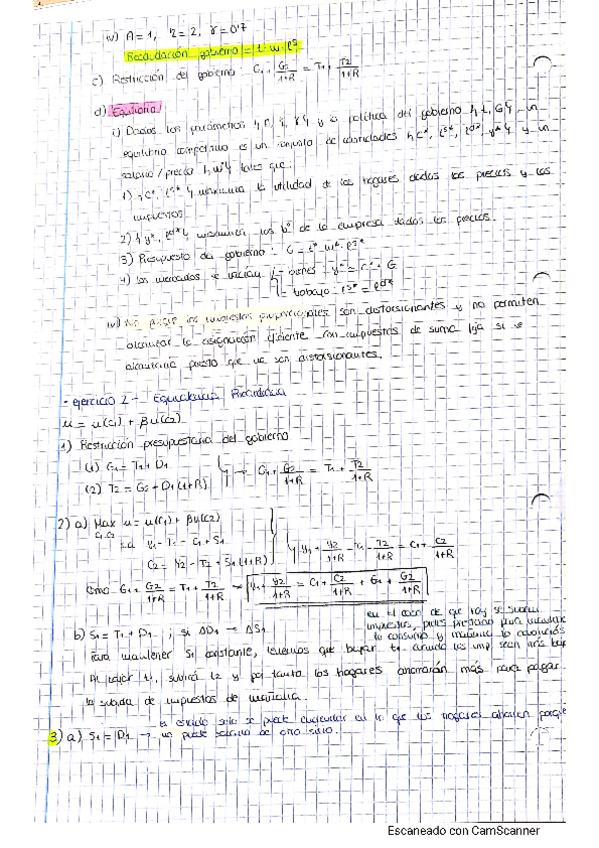 iv) A=1, z=2, γ=0'7
Recaudación gobierno = t·w·l^s
c) Restricción del gobierno: G1 + G2/1+R = T1 + T2/1+R
d) Equilibrio
i) Dados los parámetros y la política del gobierno {t, G}, un
equilibrio competitivo es un conjunto de cantidades {c*, l^s*, l^d*, y*} y un
salario/precio {w*} tales que:
1) {c*, l^s*} maximizan la utilidad de los hogares dados los precios y los
impuestos
2) {y*, l^d*} maximizan los bº de la empresa dados los precios.
3) Presupuesto del gobierno: G = t* w* l^s*
4) Los mercados se vacían: - bienes: y* = c* + G
- trabajo: l^s* = l^d*
iv) No porque los impuestos proporcionales son distorsionantes y no permiten
alcanzar la asignación eficiente. Con impuestos de suma fija si se
alcanzaría puesto que no son distorsionantes.
- Ejercicio 2 - Equivalencia Ricardiana
u = u(c1) + βu(c2)
1) Restricción presupuestaria del gobierno
(1) G1 = T1 + D1
(2) T2 = G2 + D1(1+R) } → G1 + G2/1+R = T1 + T2/1+R
2) a) Max u = u(c1) + βu(c2)
c1,c2
s.a. y1 - T1 = c1 + S1
c2 = y2 - T2 + S1(1+R) } y1 + y2/1+R - T1 - T2/1+R = c1 + c2/1+R
Como G1 + G2/1+R = T1 + T2/1+R → y1 + y2/1+R = c1 + c2/1+R + G1 + G2/1+R
b) S1 = T1 + D1 ; si ΔD1 → ΔS1
Para mantener S1 constante, tenemos que bajar t1
Al bajar t1, subirá t2 y por tanto los hogares ahorrarán más para pagar
la subida de impuestos de mañana.
3) a) S1 = D1 → el estado solo se puede endeudar en lo que los hogares ahorren porque
no puede de otro sitio.
Escaneado con CamScanner